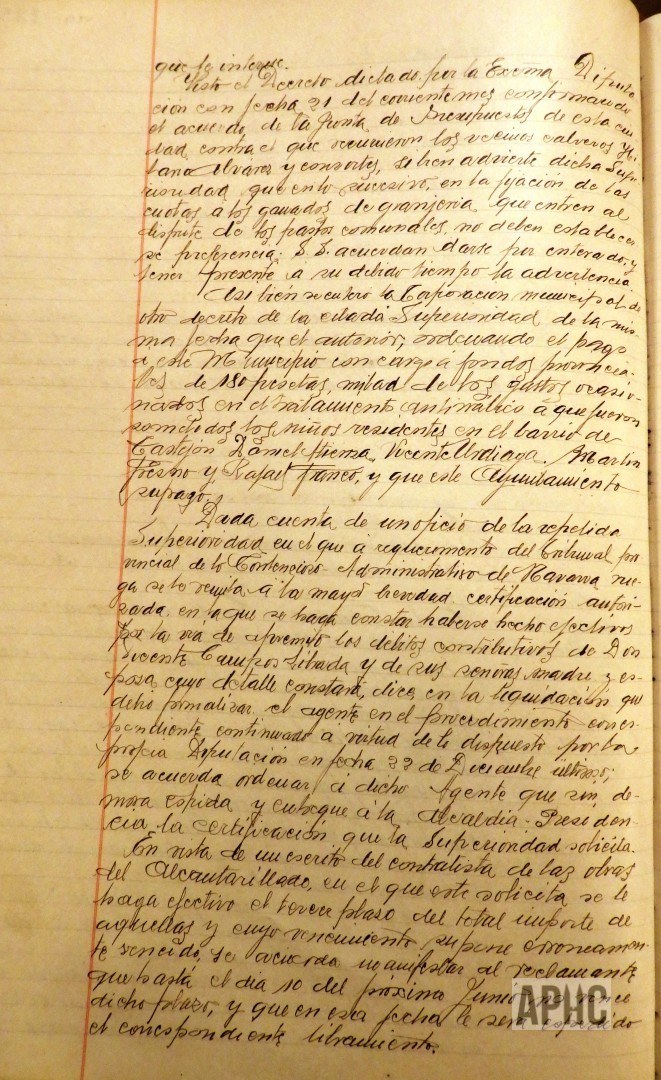 que le interese.
Visto el Decreto dictado por la Excma Diputa
ción con fecha 21 del corriente mes confirmando
el acuerdo de la Junta de Presupuestos de esta ciu
dad contra el que recurrieron los vecinos
Alvarez y consortes, si bien advierte dicha Supe
rioridad que en lo sucesivo, en la fijación de las
cuotas á los ganados de granjería que entren al
disfrute de los pastos comunales, no deben establecer
se preferencia; S.S. acuerdan darse por enterados y
tener presente á su debido tiempo la advertencia.
Así bién se enteró la Corporación municipal de
otro decreto de la citada Superioridad de la mis
ma fecha que el anterior, ordenando el pago
á este Municipio con cargo á fondos provincia
les de 180 pesetas, mitad de los gastos ocasio
nados en el tratamiento antirrábico á que fueron
sometidos los niños residentes en el barrio de
Castejón Daniel Atienza, Vicente Urdiaga, Martin
Fresno y Rafael Franco, y que este Ayuntamiento
sufragó.
Dada cuenta de un oficio de la repetida
Superioridad en el que á requerimiento del Tribunal pro
vincial de lo Contencioso-Administrativo de Navarra rue-
ga se le remita á la mayor brevedad certificación autori-
zada, en la que se haga constar haberse hecho efectivos
por la vía de apremio los débitos contributivos de Don
Vicente Campos y de sus señoras madre y es-
posa cuyo detalle constará, dice, en la liquidación que
debió formalizar el agente en el procedimiento corres-
pondiente continuado á virtud de lo dispuesto por la
propia Diputación en fecha 22 de Diciembre último;
se acuerda ordenar á dicho Agente que sin de-
mora expida y entregue á la Alcaldía-Presiden-
cia la certificación que la Superioridad solicita.
En vista de un escrito del contratista de las obras
del Alcantarillado, en el que este solicita se le
haga efectivo el tercer plazo del total importe de
aquellas y cuyo vencimiento supone erroneamen-
te vencido, se acuerda manifestar al reclamante
que hasta el día 10 del próximo Junio no vence
dicho plazo, y que en esa fecha le será expedido
el correspondiente libramiento.
APHC